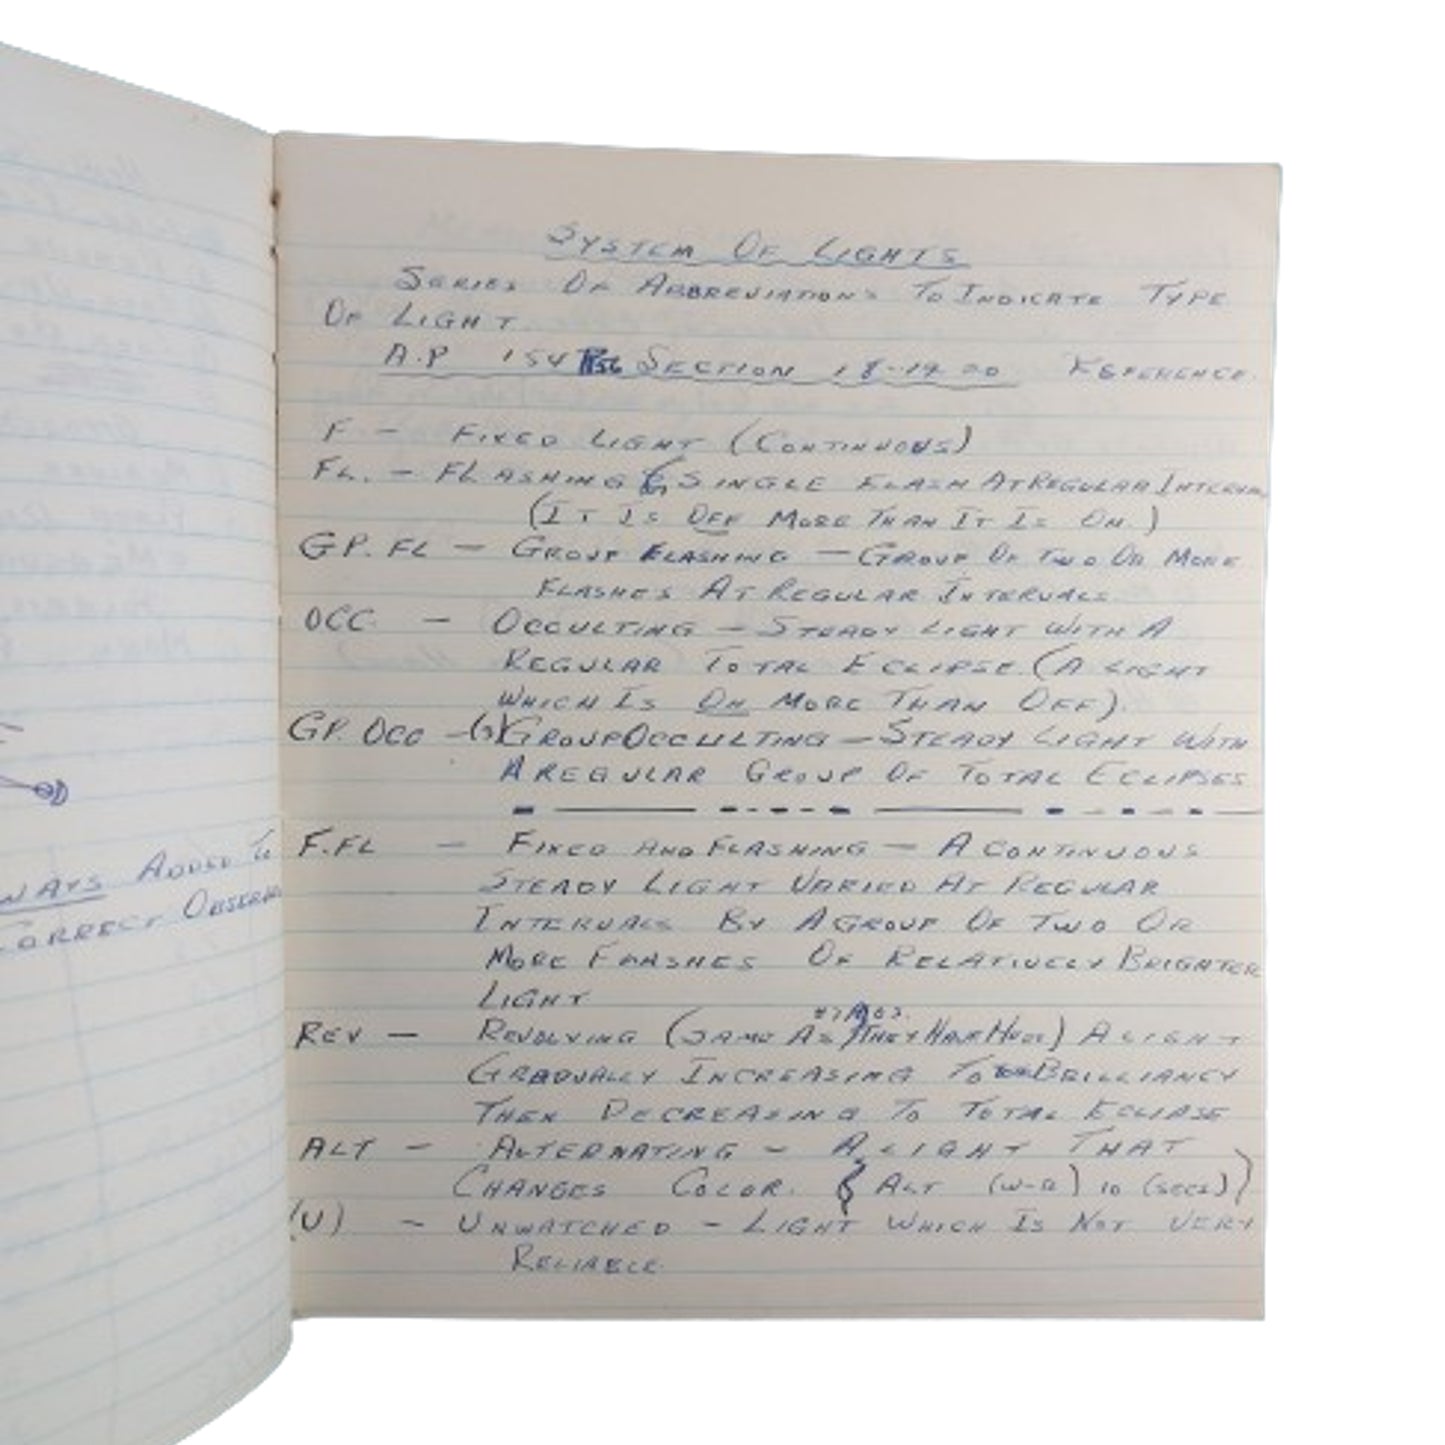 WAYS ADDED TO
CORRECT
SYSTEM OF LIGHTS
SERIES OF ABBREVIATIONS TO INDICATE TYPE
OF LIGHT.
A.P 154 SECTION 18-19 REFERENCE.
F - FIXED LIGHT (CONTINUOUS)
FL. - FLASHING SINGLE FLASH AT REGULAR
(IT IS OFF MORE THAN IT IS ON.)
GP. FL - GROUP FLASHING - GROUP OF TWO OR MORE
FLASHES AT REGULAR INTERVALS.
OCC - OCCULTING - STEADY LIGHT WITH A
REGULAR TOTAL ECLIPSE. (A LIGHT
WHICH IS ON MORE THAN OFF).
GP. OCC - GROUP OCCULTING - STEADY LIGHT WITH
A REGULAR GROUP OF TOTAL ECLIPSES
F.FL - FIXED AND FLASHING - A CONTINUOUS
STEADY LIGHT VARIED AT REGULAR
INTERVALS BY A GROUP OF TWO OR
MORE FLASHES OF RELATIVELY BRIGHTER
LIGHT
REV - REVOLVING (SAME AS THEY HAVE) A LIGHT
GRADUALLY INCREASING TO BRILLIANCY
THEN DECREASING TO TOTAL ECLIPSE
ALT - ALTERNATING - A LIGHT THAT
CHANGES COLOR. ALT (W-R) 10 (SECS)
(U) - UNWATCHED - LIGHT WHICH IS NOT VERY
RELIABLE